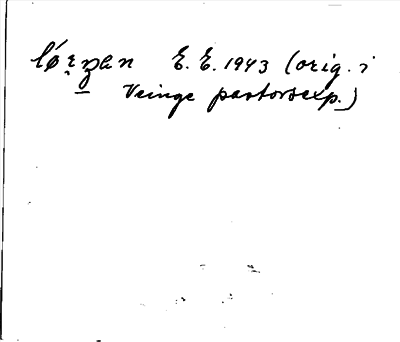 lórzan E.E. 1943 (orig. i
Veinge pastorsexp.)